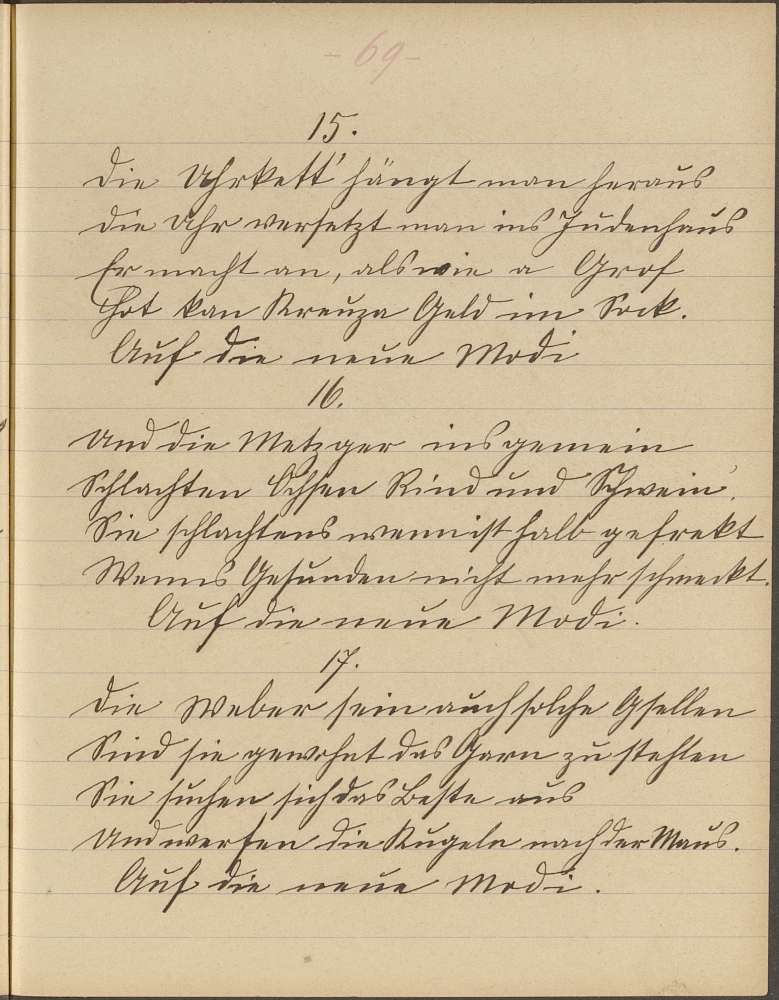 - 69 -
15.
Die Uhrkett' hängt man heraus
Die Uhr versetzt man ins Judenhaus
Er macht an, als wie a Grof
Hot kan Kreuza Geld im Sock.
Auf die neue Modi
16.
Und die Metzger insgemein
Schlachten Ochsen Rind und Schwein.
Sie schlachtens wennist halb gefrekt
Wenns Gesunden nicht mehr schmeckt.
Auf die neue Modi.
17.
Die Weber sein auch solche Gsellen
Sind sie gewohnt das Garn zu stehlen
Sie suchen sich das Beste aus
Und werfen die Kugeln nach der Maus.
Auf die neue Modi.